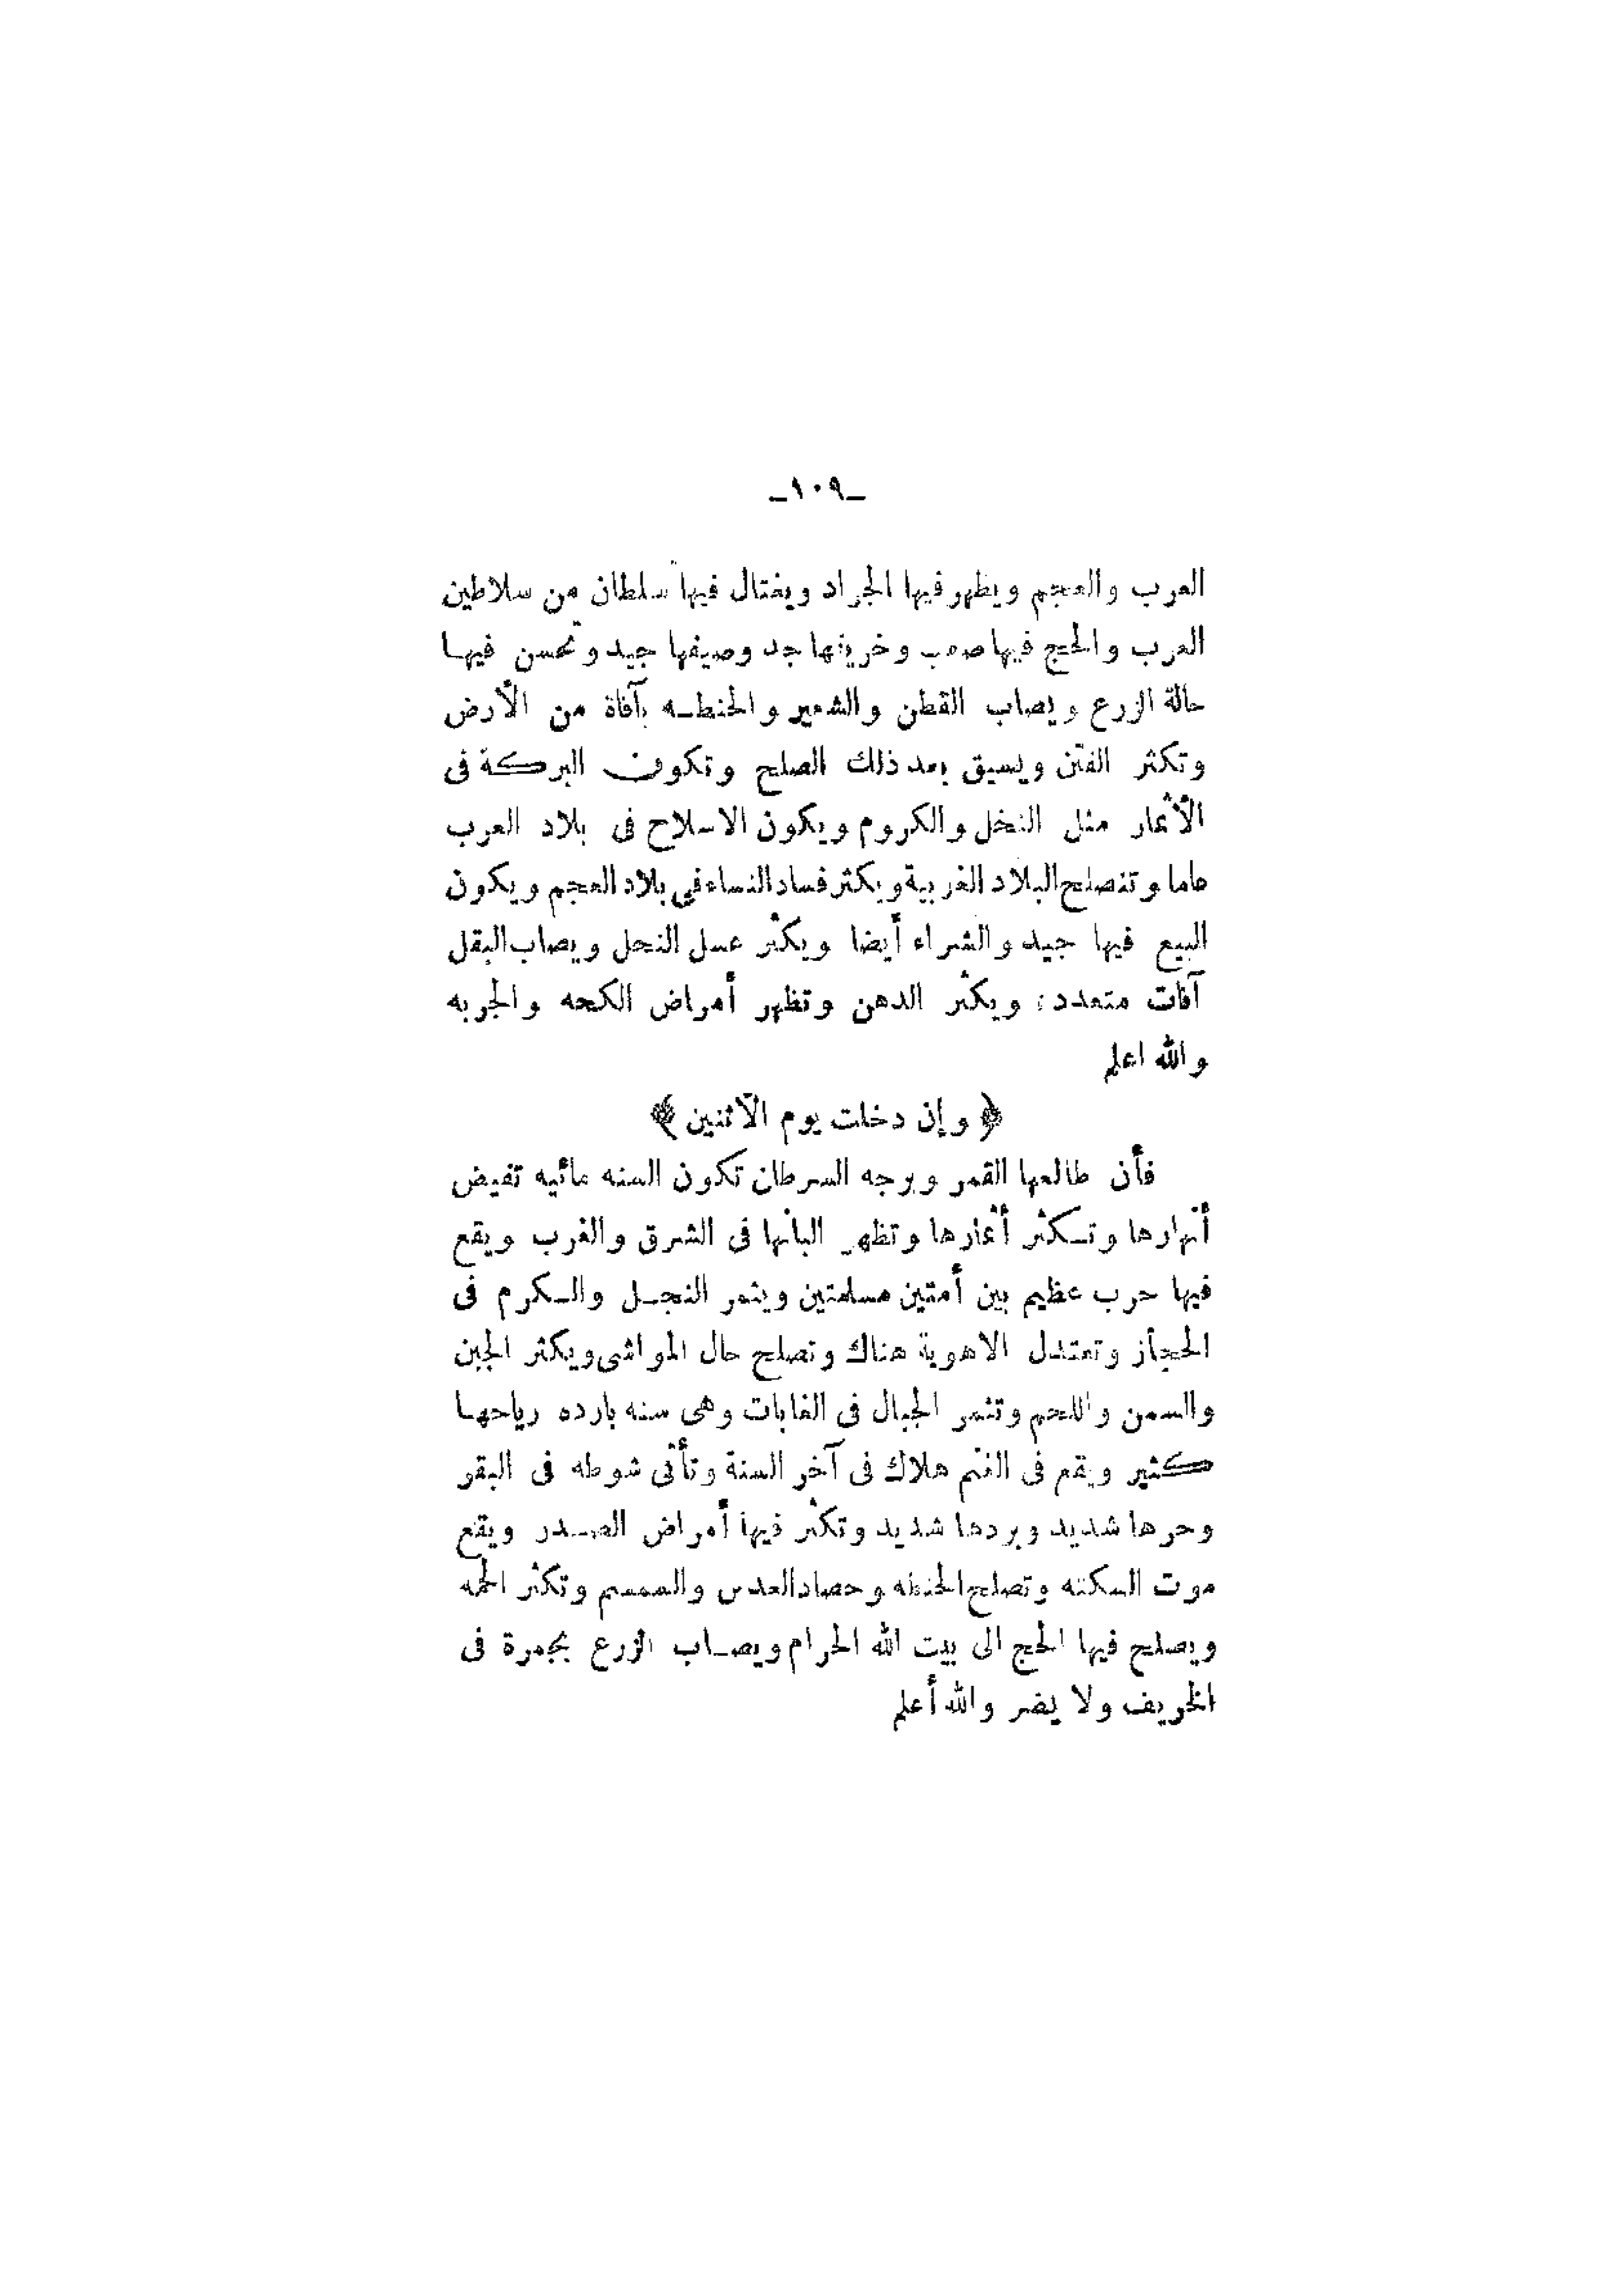 ـ١٠٩ـ
العرب والعجم ويظهر فيها الجراد ويغتال فيها سلطان من سلاطين
العرب والحج فيها صعب وخريفها جد وصيفها جيد وتحسن فيها
حالة الزرع ويصاب القطن والشعير والحنطه بآفاة من الأرض
وتكثر الفتن ويسبق بعد ذلك الصلح وتكون البركة فى
الأثمار مثل النخل والكروم ويكون الاسلاح فى بلاد العرب
عاما وتنصلح البلاد الغربية ويكثر فساد النساء في بلاد العجم ويكون
البيع فيها جيد والشراء أيضا ويكثر عسل النحل ويصاب البقل
آفات متعددة ويكثر الدهن وتظهر أمراض الكحه والجربه
والله اعلم
﴿ وإن دخلت يوم الآثنين ﴾
فأن طالعها القمر وبرجه السرطان تكون السنه مائيه تفيض
أنهارها وتكثر أثمارها وتظهر البانها فى الشرق والغرب ويقع
فيها حرب عظيم بين أمتين مسلمتين ويثمر النجل والكرم فى
الحجاز وتعتدل الاهوية هناك وتصلح حال المواشى ويكثر الجبن
والسمن واللحم وتثمر الجبال فى الغابات وهى سنه بارده رياحها
كثير ويقع فى الغنم هلاك فى آخر السنة وتأتى شوطه فى البقر
وحرها شديد وبردها شديد وتكثر فيها أمراض الصدر ويقع
موت السكته وتصلح الحنطه وحصاد العدس والسمسم وتكثر الحمه
ويصلح فيها الحج الى بيت الله الحرام ويصاب الزرع بجمرة فى
الخريف ولا يضر والله أعلم